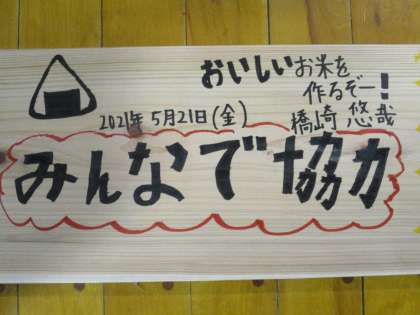 おいしいお米を
作るぞー!
2021年5月21日(金)
橋崎 悠哉
みんなで協力